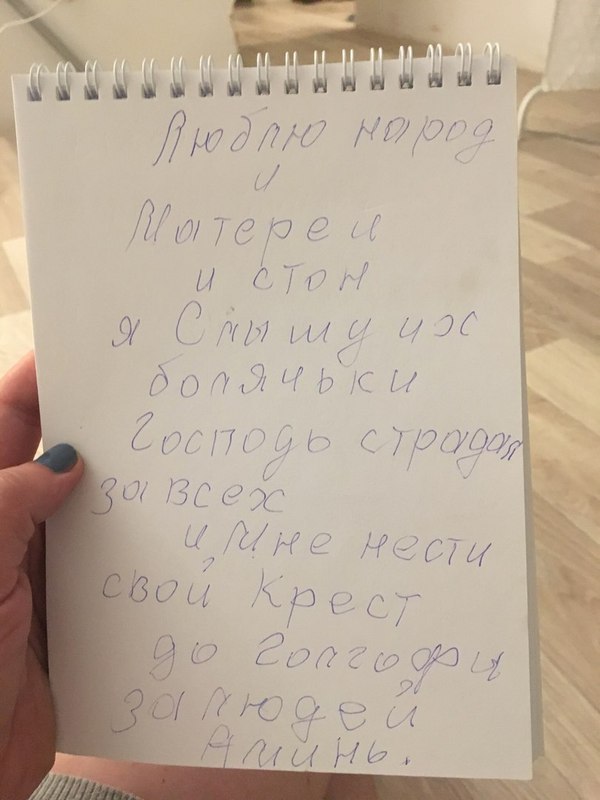 Люблю народ
и
Матереи
и стон
я Слышу их
болячьки
Господь страдал
за всех
и Мне нести
свой Крест
до Голгофы
за людей
Аминь.